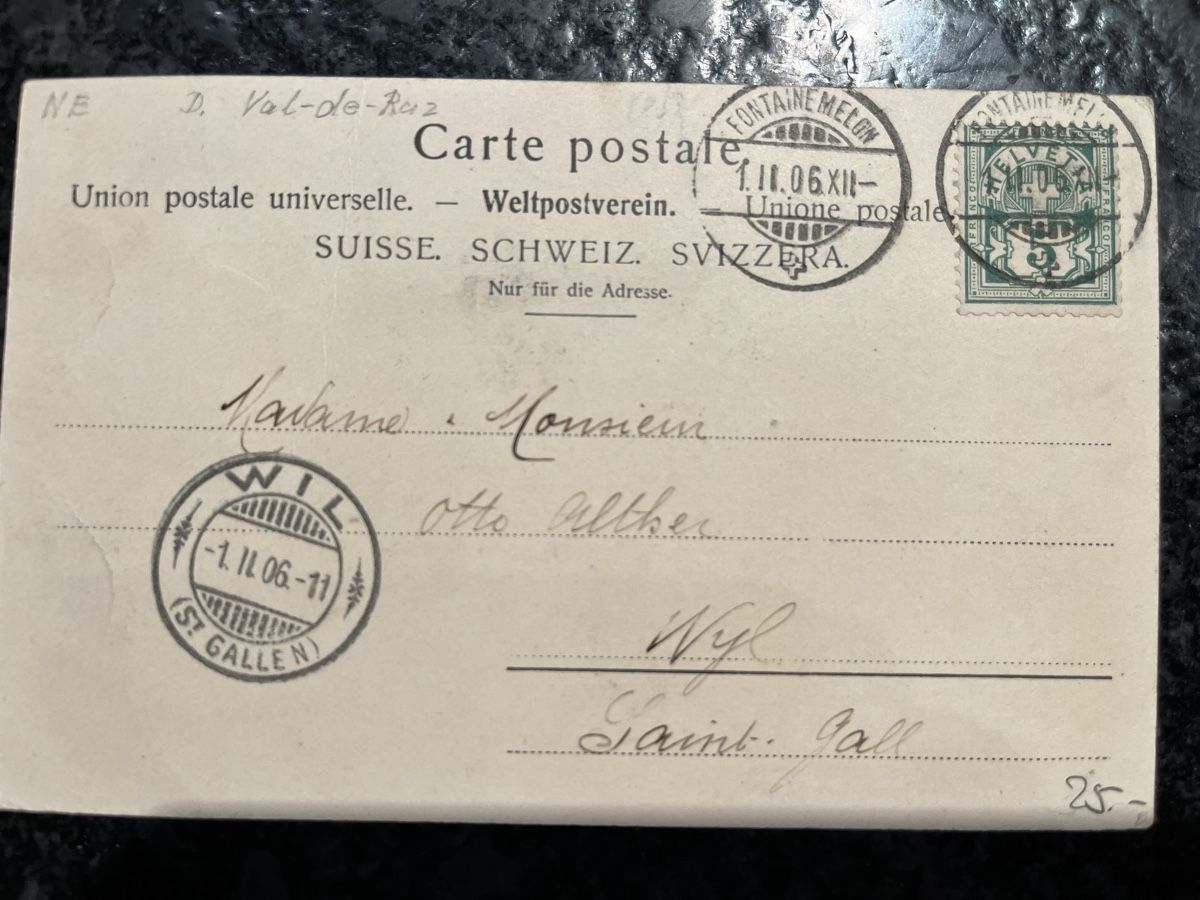 NE D. Val-de-Ruz
Carte postale.
Union postale universelle. — Weltpostverein. — Unione postale
SUISSE. SCHWEIZ. SVIZZERA.
Nur für die Adresse.
FONTAINEMELON
1.II.06.XII–
FONTAINEMEL
HELVETIA
FRANCO
FRANCO
5
Madame & Monsieur
Otto Alther
WIL
-1.II.06.-11
(ST GALLEN)
Wyl
Saint-Gall
25.-